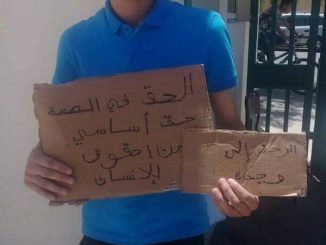 الحق في الصحة
حق أساسي
من حقوق
الإنسان
الرحمة إلى
وجدة